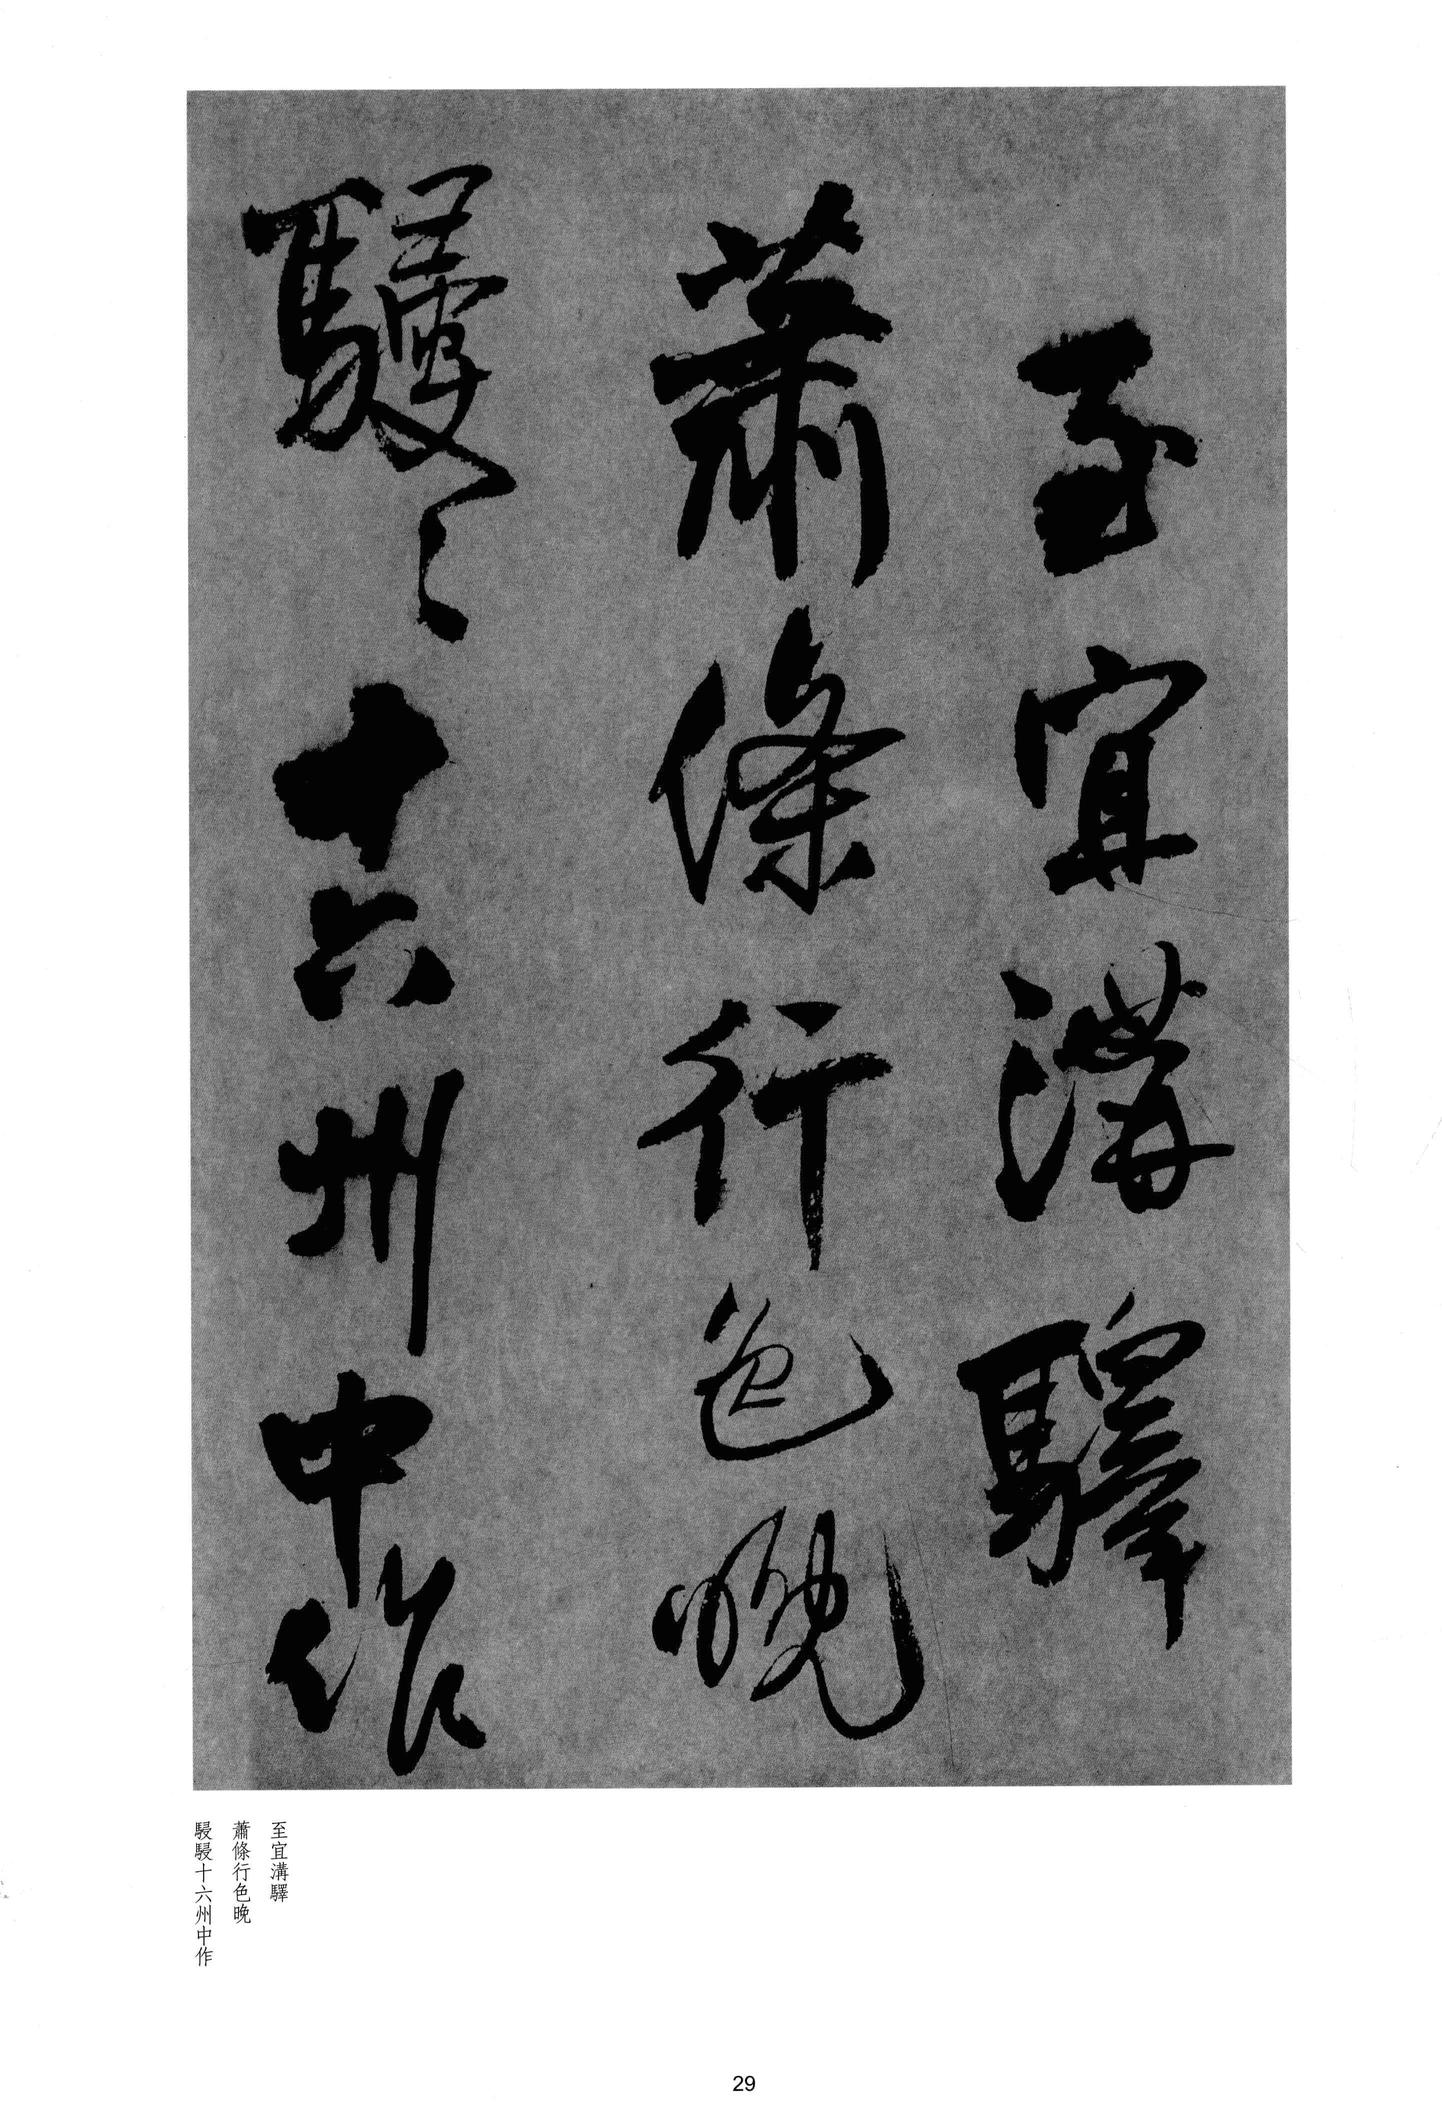 至宜溝驛
蕭條行色晚
駸〻十六州中作
至宜溝驛
蕭條行色晚
駸駸十六州中作
29